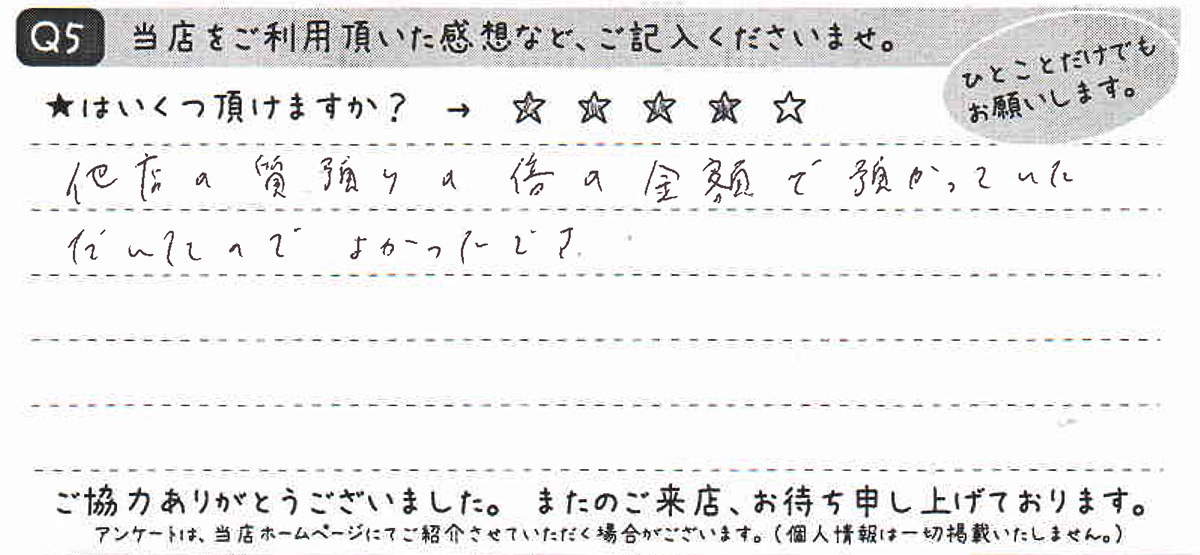 Q5 当店をご利用頂いた感想など、ご記入くださいませ。
ひとことだけでも
お願いします。
★はいくつ頂けますか？ → ☆ ☆ ☆ ☆ ☆
他店の質預りの倍の金額で預かっていた
だいたので よかったです.
ご協力ありがとうございました。 またのご来店、お待ち申し上げております。
アンケートは、当店ホームページにてご紹介させていただく場合がございます。（個人情報は一切掲載いたしません。）